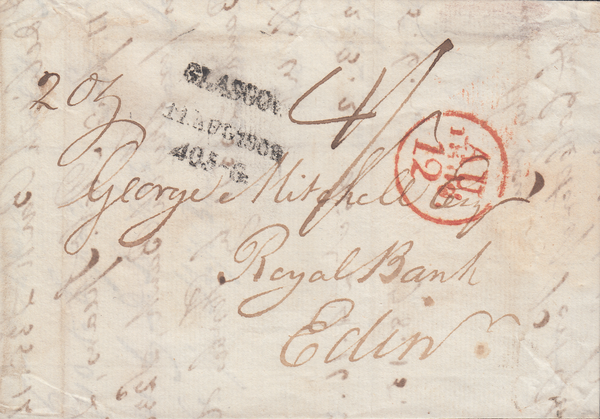 2 oz.
GLASGOW
11 AUG 1809
405-G
4/
AU
12
George Mitchell Esqr
Royal Bank
Edinr.